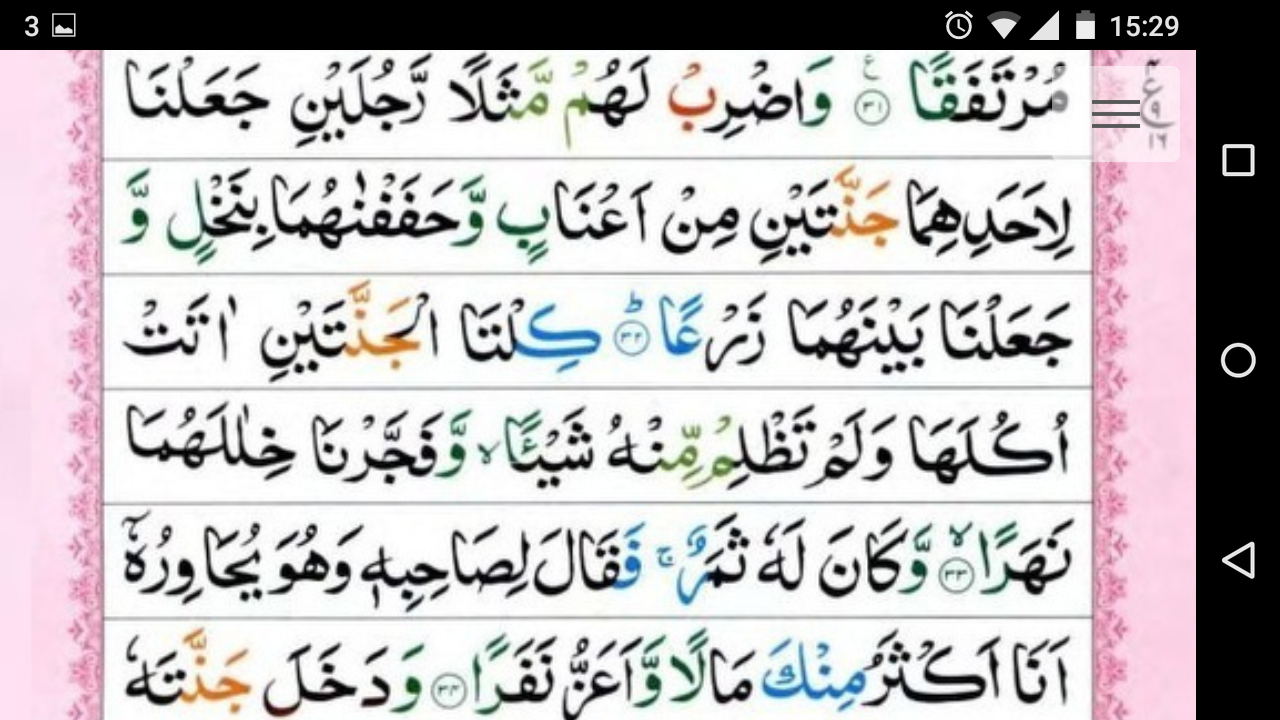 3 15:29
مُرْتَفَقًا ۝۳۱ وَاضْرِبْ لَهُمْ مَّثَلًا رَّجُلَيْنِ جَعَلْنَا
ع ۹ ۱٦
لِاَحَدِهِمَا جَنَّتَيْنِ مِنْ اَعْنَابٍ وَّحَفَفْنٰهُمَا بِنَخْلٍ وَّ
جَعَلْنَا بَيْنَهُمَا زَرْعًا ۝۳۲ؕ كِلْتَا الْجَنَّتَيْنِ اٰتَتْ
اُكُلَهَا وَلَمْ تَظْلِمْ مِّنْهُ شَيْـًٔا ۙ وَّفَجَّرْنَا خِلٰلَهُمَا
نَهَرًا ۝۳۳ۙ وَّكَانَ لَهٗ ثَمَرٌ ۚ فَقَالَ لِصَاحِبِهٖ وَهُوَ يُحَاوِرُهٗٓ
اَنَا اَكْثَرُ مِنْكَ مَالًا وَّاَعَزُّ نَفَرًا ۝۳۴ وَدَخَلَ جَنَّتَهٗ